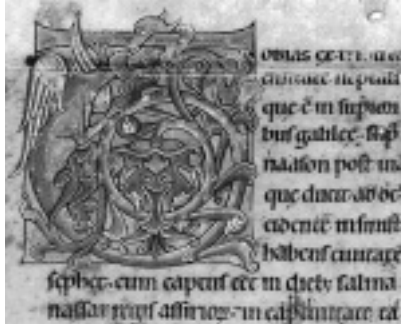 obias ex
ciuitate neptali
que ē in superiori
bus galilee. sup̄
naason post
que ducit ad oc
cidentē in sinist
habens ciuitatē
sephet. cum captus eēt in dieb; salma
nassar regis assirior. in captiuitate